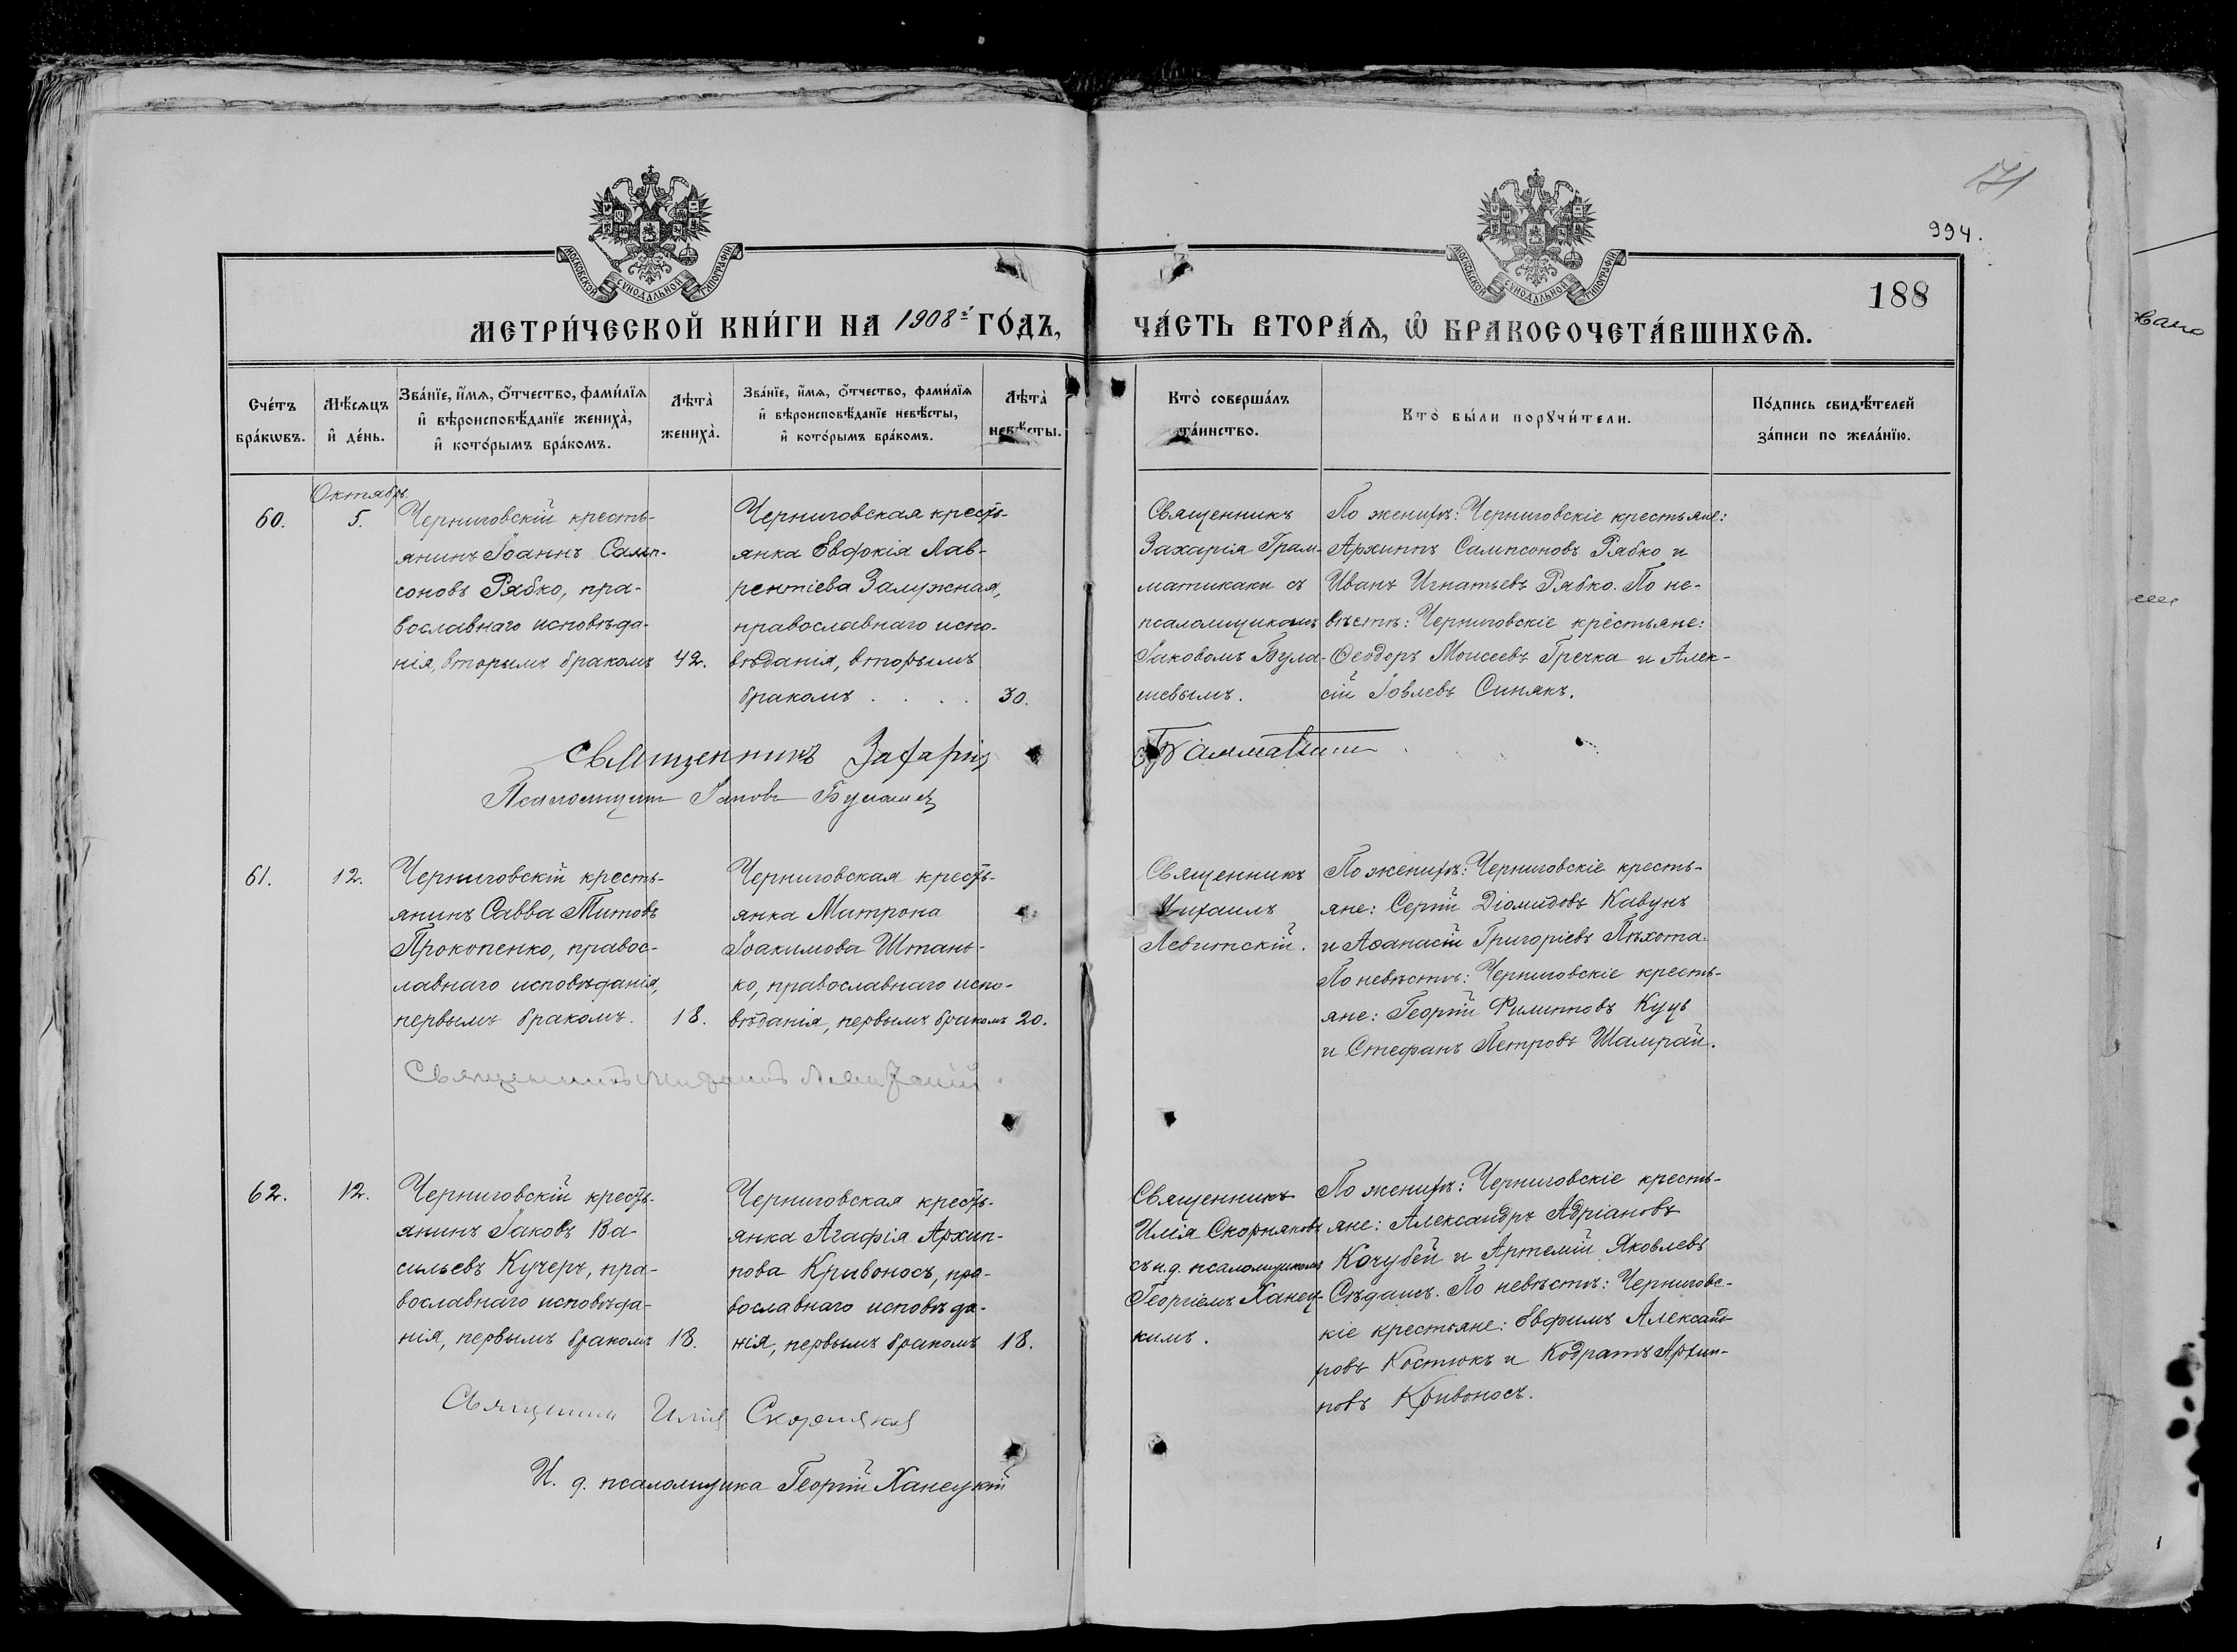 171
994.
188
МОСКОВСКОЙ СѴНОДАЛЬНОЙ ТИПОГРАФІИ
МОСКОВСКОЙ СѴНОДАЛЬНОЙ ТИПОГРАФІИ
МЕТРИ́ЧЕСКОЙ КНИ́ГИ НА 1908й ГО́ДЪ,
ЧА́СТЬ ВТОРА́Ѧ, Ѽ БРАКОСОЧЕТА́ВШИХСѦ.
Сче́тъ
бра́кѡвъ.
Мѣ́сѧцъ
и҆ де́нь.
Зва́нїе, и҆́мѧ, ѻ҆́тчество, фами́лїѧ
и҆ вѣроисповѣ́данїе жениха̀,
и҆ кото́рымъ бра́комъ.
Лѣта̀
жениха̀.
Зва́нїе, и҆́мѧ, ѻ҆́тчество, фами́лїѧ
и҆ вѣроисповѣ́данїе невѣ́сты,
и҆ кото́рымъ бра́комъ.
Лѣта̀
невѣ́сты.
Кто̀ соверша́лъ
та́инство.
Кто̀ бы́ли порꙋчи́тели.
По́дпись свидѣ́телей
за́писи по жела́нїю.
Октябрь.
60.
5.
Черниговскій кресть-
янинъ Іоаннъ Самп-
соновъ Рябко, пра-
вославнаго исповѣда-
нія, вторымъ бракомъ
42.
Черниговская кресть-
янка Евдокія Лав-
рентіева Залужная,
православнаго испо-
вѣданія, вторымъ
бракомъ . . . .
30.
Священникъ
Захарія Грам-
матикаки съ
псаломщикомъ
Іаковомъ Була-
шевымъ.
По женихѣ: Черниговскіе крестьяне:
Архиппъ Сампсоновъ Рябко и
Иванъ Игнатьевъ Рябко. По не-
вѣстѣ: Черниговскіе крестьяне:
Ѳеодоръ Моисеевъ Гречка и Алек-
сій Іовлевъ Синякъ.
Священникъ Захарія
Псаломщикъ Іаковъ Булашевъ
61.
12.
Черниговскій кресть-
янинъ Савва Титовъ
Прокопенко, правос-
лавнаго исповѣданія,
первымъ бракомъ.
18.
Черниговская кресть-
янка Матрона
Іоакимова Штань-
ко, православнаго испо-
вѣданія, первымъ бракомъ
20.
Священникъ
Михаилъ
Левитскій.
По женихѣ: Черниговскіе кресть-
яне: Сергій Діомидовъ Кавунъ
и Аѳанасій Григоріевъ Пѣхота.
По невѣстѣ: Черниговскіе кресть-
яне: Георгій Филипповъ Куць
и Стефанъ Петровъ Шамрай.
Священникъ Михаилъ Левитскій.
62.
12.
Черниговскій кресть-
янинъ Іаковъ Ва-
сильевъ Кучеръ, пра-
вославнаго исповѣда-
нія, первымъ бракомъ
18.
Черниговская кресть-
янка Агафія Архип-
пова Кривоносъ, пра-
вославнаго исповѣда-
нія, первымъ бракомъ
18.
Священникъ
Илія Скорняковъ
съ и.д. псаломщикомъ
Георгіемъ Ханец-
кимъ.
По женихѣ: Черниговскіе кресть-
яне: Александръ Адріановъ
Кочубей и Артемій Яковлевъ
По невѣстѣ: Черниговс-
кіе крестьяне: Евфимъ Александ-
ровъ Костюкъ и Кодратъ Архип-
повъ Кривоносъ.
Священникъ Илія Скорняковъ
И. д. псаломщика Георгій Ханецкій